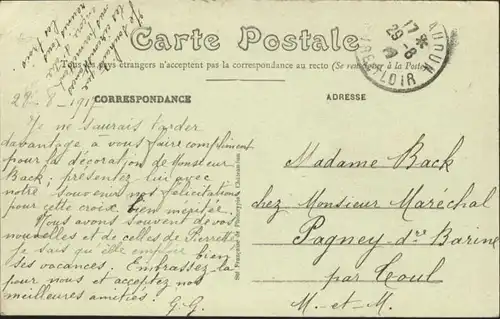 Carte Postale
Tous les pays étrangers n'acceptent pas la correspondance au recto (Se renseigner à la Poste)
CORRESPONDANCE
ADRESSE
17 *
29-8
LOIR
Je ne saurais tarder
davantage à vous faire compliment
pour la décoration de Monsieur
Back; présentez lui avec
notre souvenirs nos félicitations
pour cette croix bien méritée.
Nous avons souvent de vos
nouvelles et de celles de Pierrette
Je sais qu'elle emploie bien
ses vacances. Embrassez-la
pour nous et acceptez nos
meilleures amitiés!
G. G.
Madame Back
chez Monsieur Maréchal
Pagney-dre Barine
par Toul
M.-et-M.